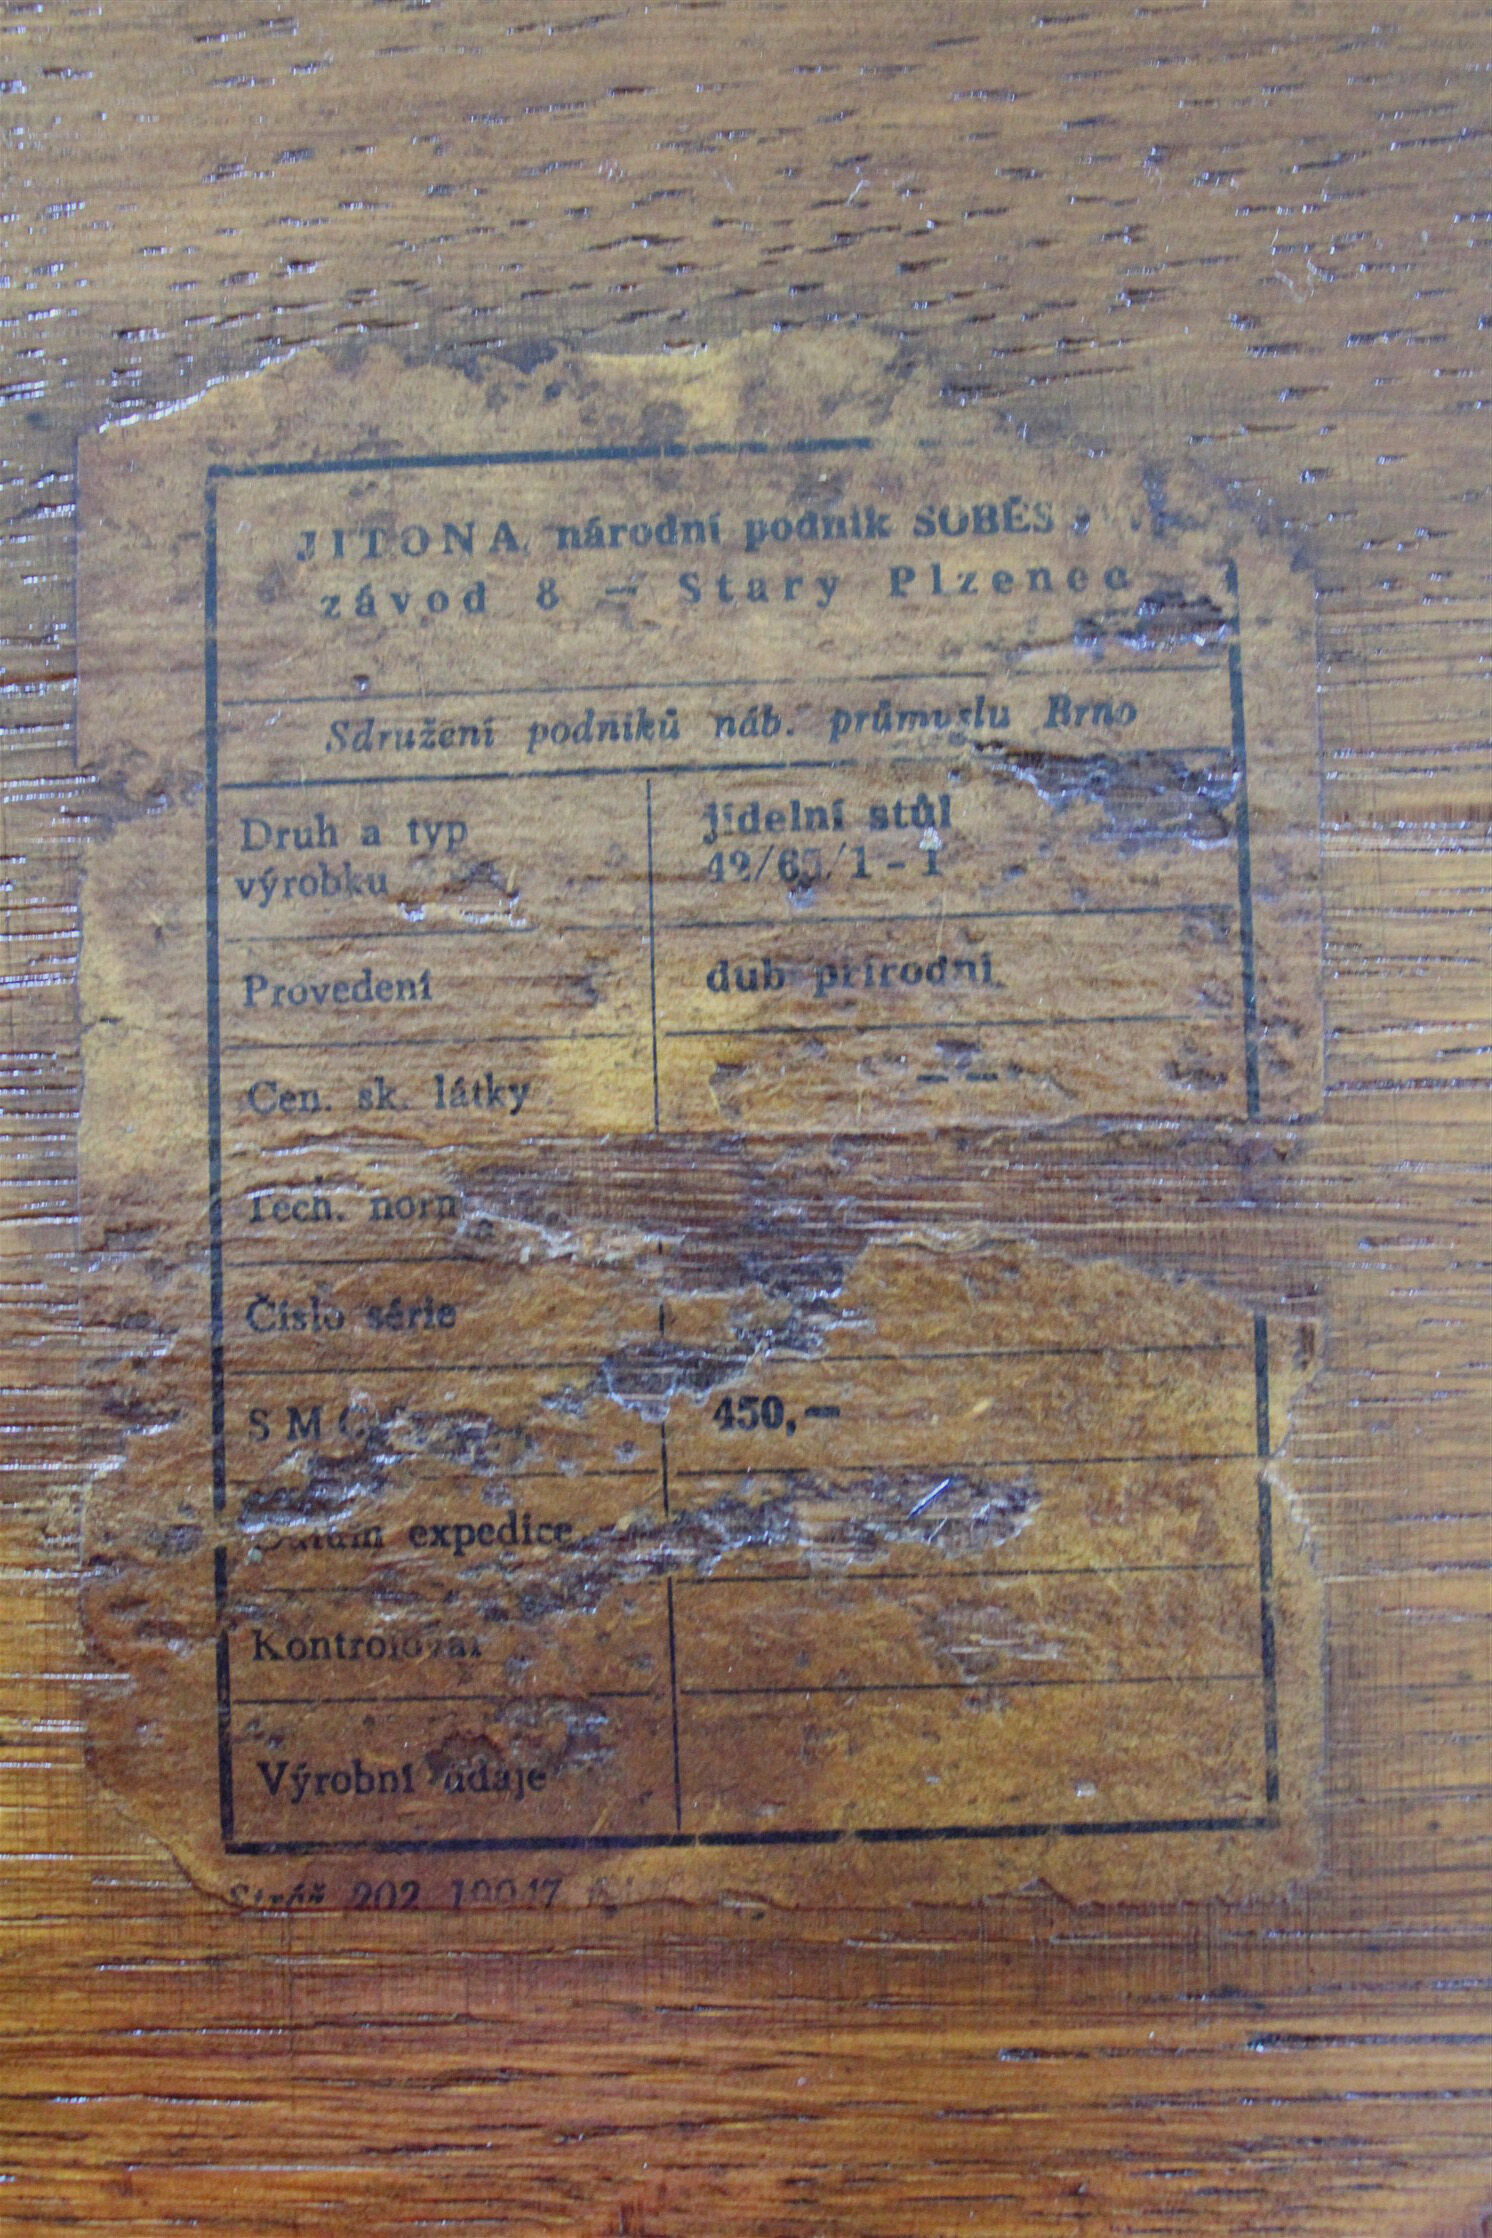 JITONA, národní podnik
závod 8 — Stary Plzenec
Sdružení podniků náb. průmyslu Brno
Druh a typ
výrobku
jídelní stůl
Provedení
dub přírodní
Cen. sk. látky
— —
Tech.
Číslo série
450,—
expedice
Kontroloval
Výrobní údaje
202